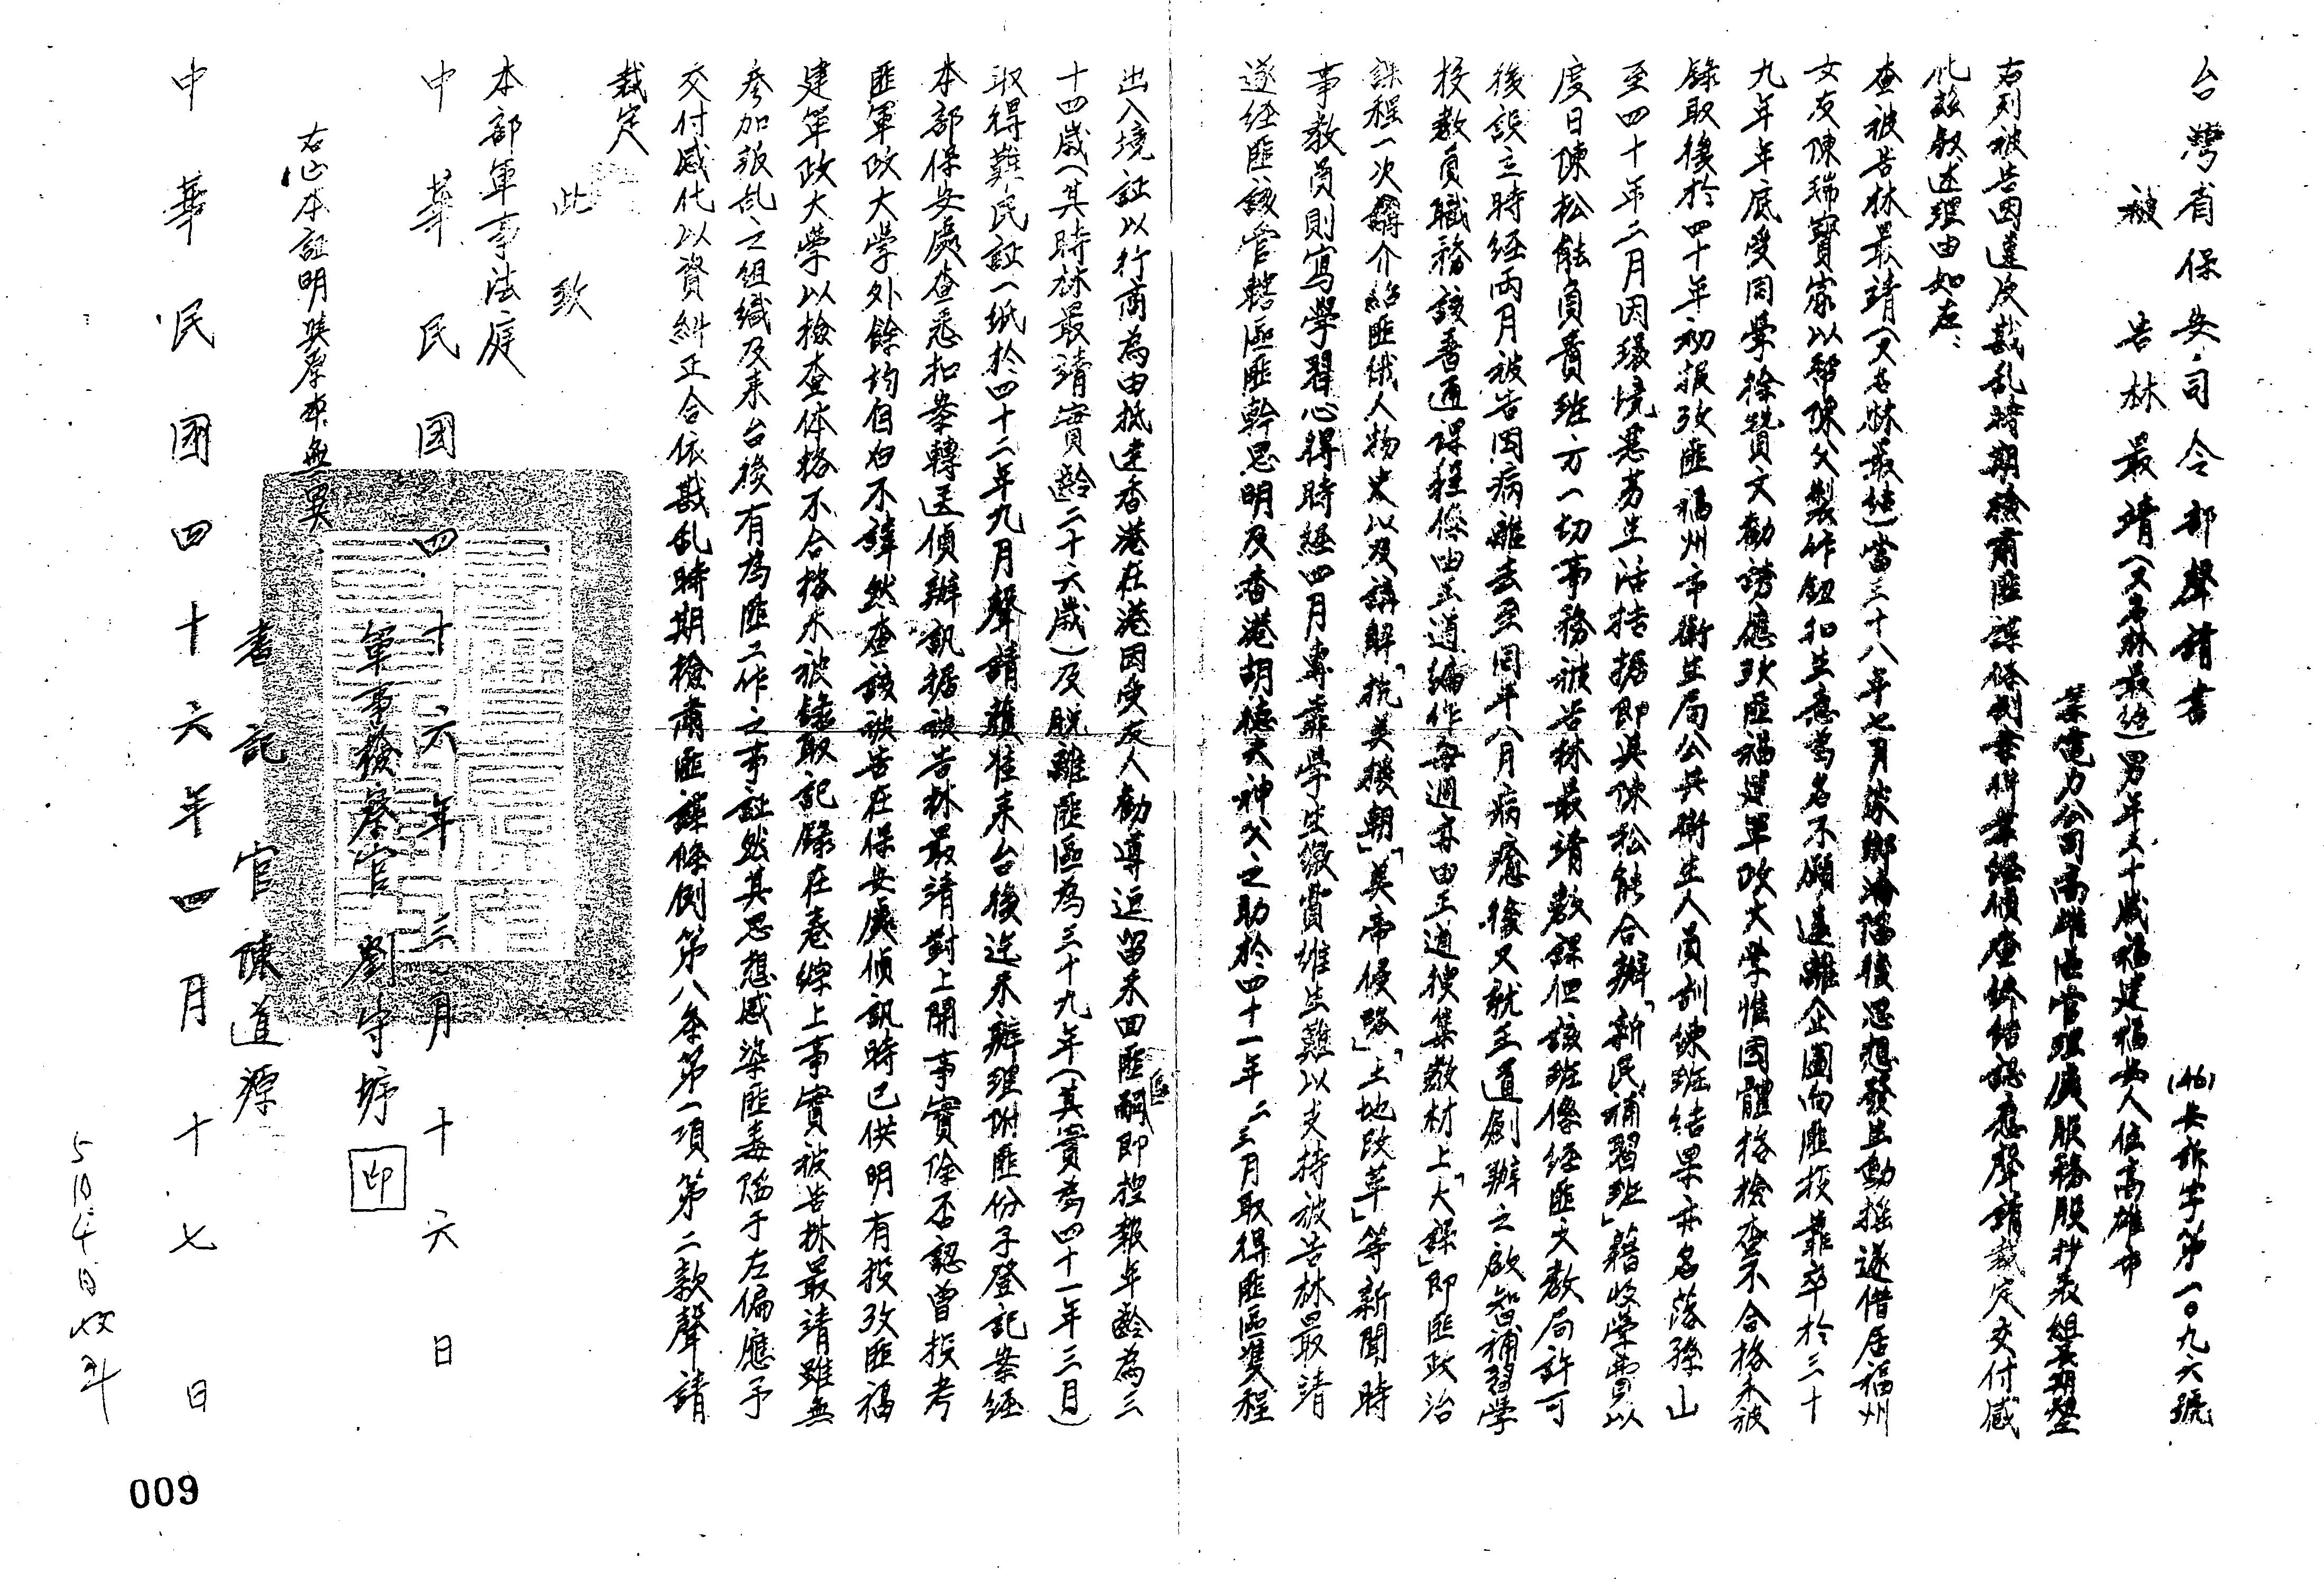 台灣省保安司令部聲請書
(46)安訴字第一〇九六號
被告林最靖(又名林最經)男年三十歲福建福安人住高雄市
業電力公司高雄區管理處服務股抄表組長期墊
右列被告因違反戡乱時期檢肅匪諜條例案件業經偵查終結認應聲請裁定交付感
化玆敘述理由如左、
查被告林最靖(又名林最經)當三十八年七月家鄉淪陷後思想發生動搖遂借居福州
女友陳瑞寶家以幫陳父製作鈕扣生意為名不願遠離企圖向匪投靠卒於三十
九年年底受同學徐贊文勸誘應考匪福建軍政大學惟因體格檢查不合格未被
錄取後於四十年初報考匪福州市衛生局公共衛生人員訓練班結果亦名落孫山
至四十年二月因環境惡劣生活拮据即與陳松能合辦「新民補習班」藉收學費以
度日陳松能負責班方一切事務被告林最靖教課但該班係經匪文教局許可
後設立時經兩月被告因病離去至同年八月病癒後又就王道創辦之啟智補習學
校教員職務該普通課程係由王道編作每週亦由王道搜集教材上「大課」即匪政治
課程一次講介紹匪俄人物史以及講解「抗美援朝」「美帝侵略」「土地改革」等新聞時
事教員則寫學習心得時經四月專靠學生繳費維生難以支持被告林最靖
遂經匪該管轄區匪幹思明及香港胡德夫神父之助於四十一年二三月取得匪區雙程
出入境証以行商為由抵達香港在港因受友人勸導逗留未回匪區嗣即捏報年齡為三
十四歲(其時林最靖實齡二十六歲)及脫離匪區為三十九年(其實為四十一年三月)
取得難民証一紙於四十二年九月聲請獲准来台後迄未辦理附匪份子登記案經
本部保安處查悉扣案轉送偵辦訊据被告林最靖對上開事實除否認曾投考
匪軍政大學外餘均自白不諱然查該被告在保安處偵訊時已供明有投攷匪福
建軍政大學以檢查体格不合格未被錄取記錄在卷綜上事實被告林最靖雖無
參加叛乱之組織及来台後有為匪工作之事証然其思想感染匪毒陷于左偏應予
交付感化以資糾正合依戡乱時期檢肅匪諜條例第八条第一項第二款聲請
裁定
此致
本部軍事法庭
中華民國四十六年三月十六日
軍事檢察官劉守塝
印
右正本証明與原本無異
書記官陳道源
中華民國四十六年四月十七日
5月4日收到
009